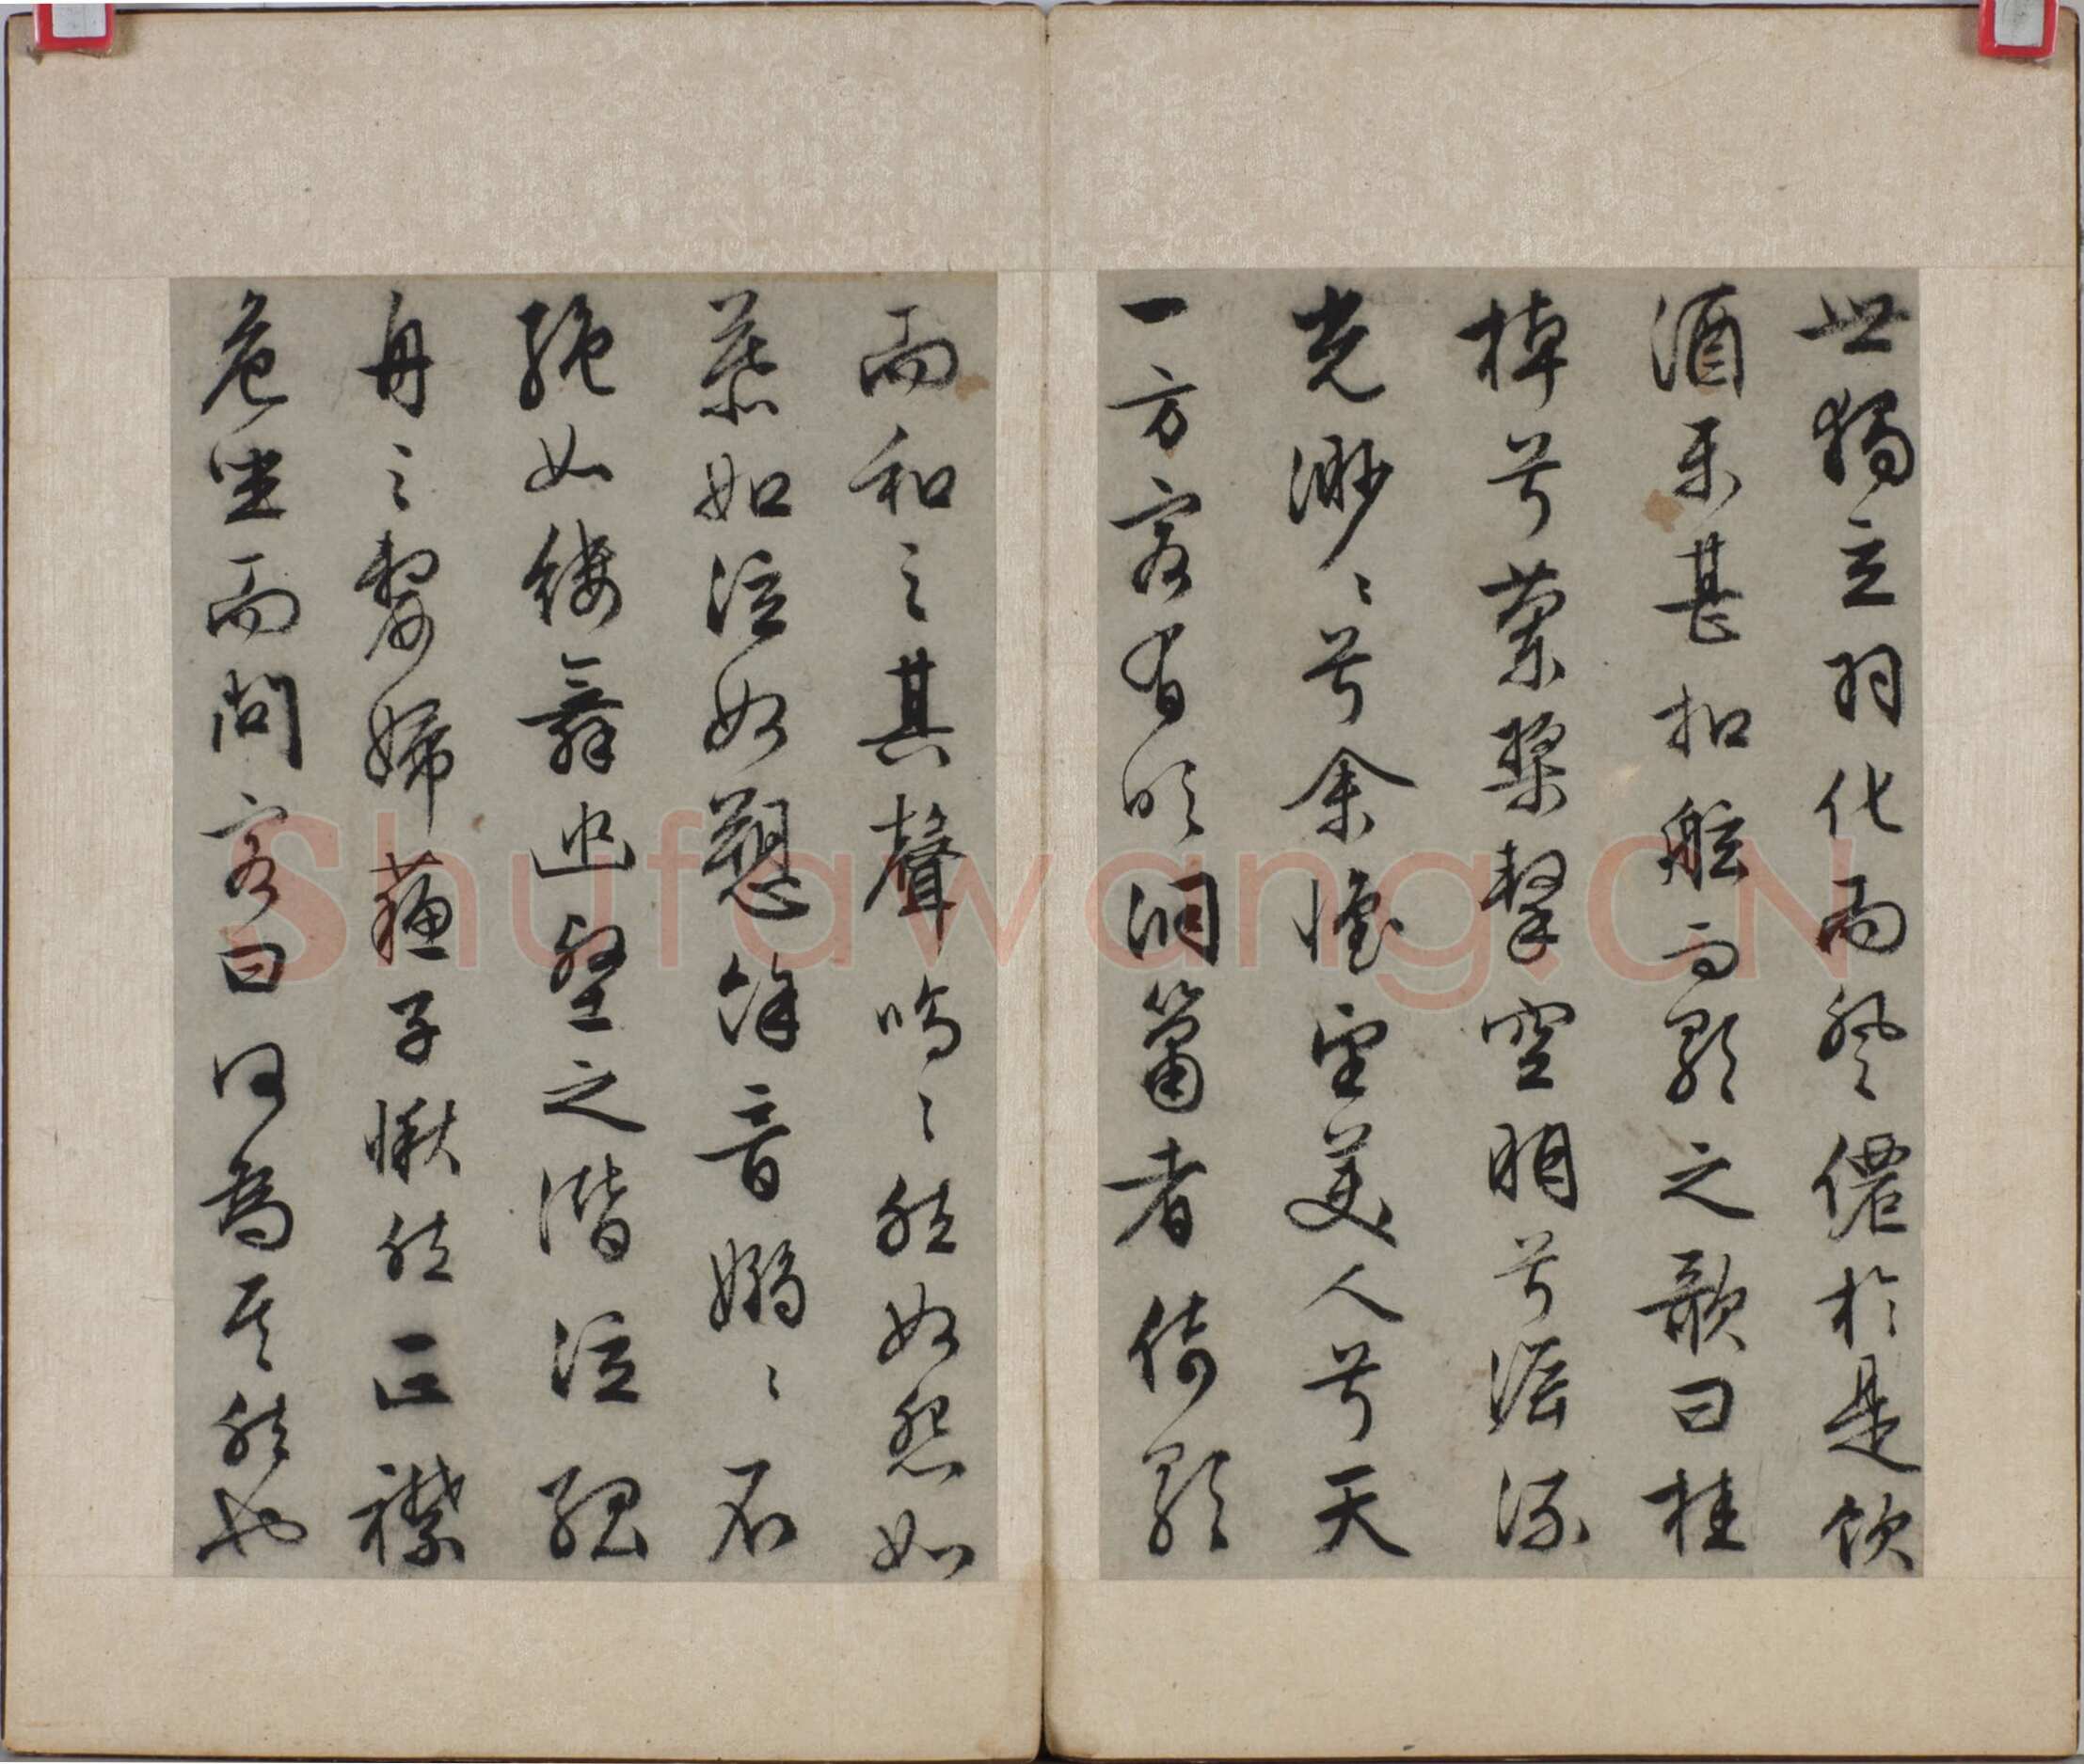 世獨立羽化而登僊於是飲
酒樂甚扣舷而歌之歌曰桂
棹兮蘭槳擊空明兮泝流
光渺〻兮余懷望美人兮天
一方客有吹洞簫者倚歌
而和之其聲嗚〻然如怨如
慕如泣如愬餘音嫋〻不
絕如縷舞幽壑之潛泣孤
舟之嫠婦蘇子愀然正襟
危坐而問客曰何為其然也
Shufawang.CN